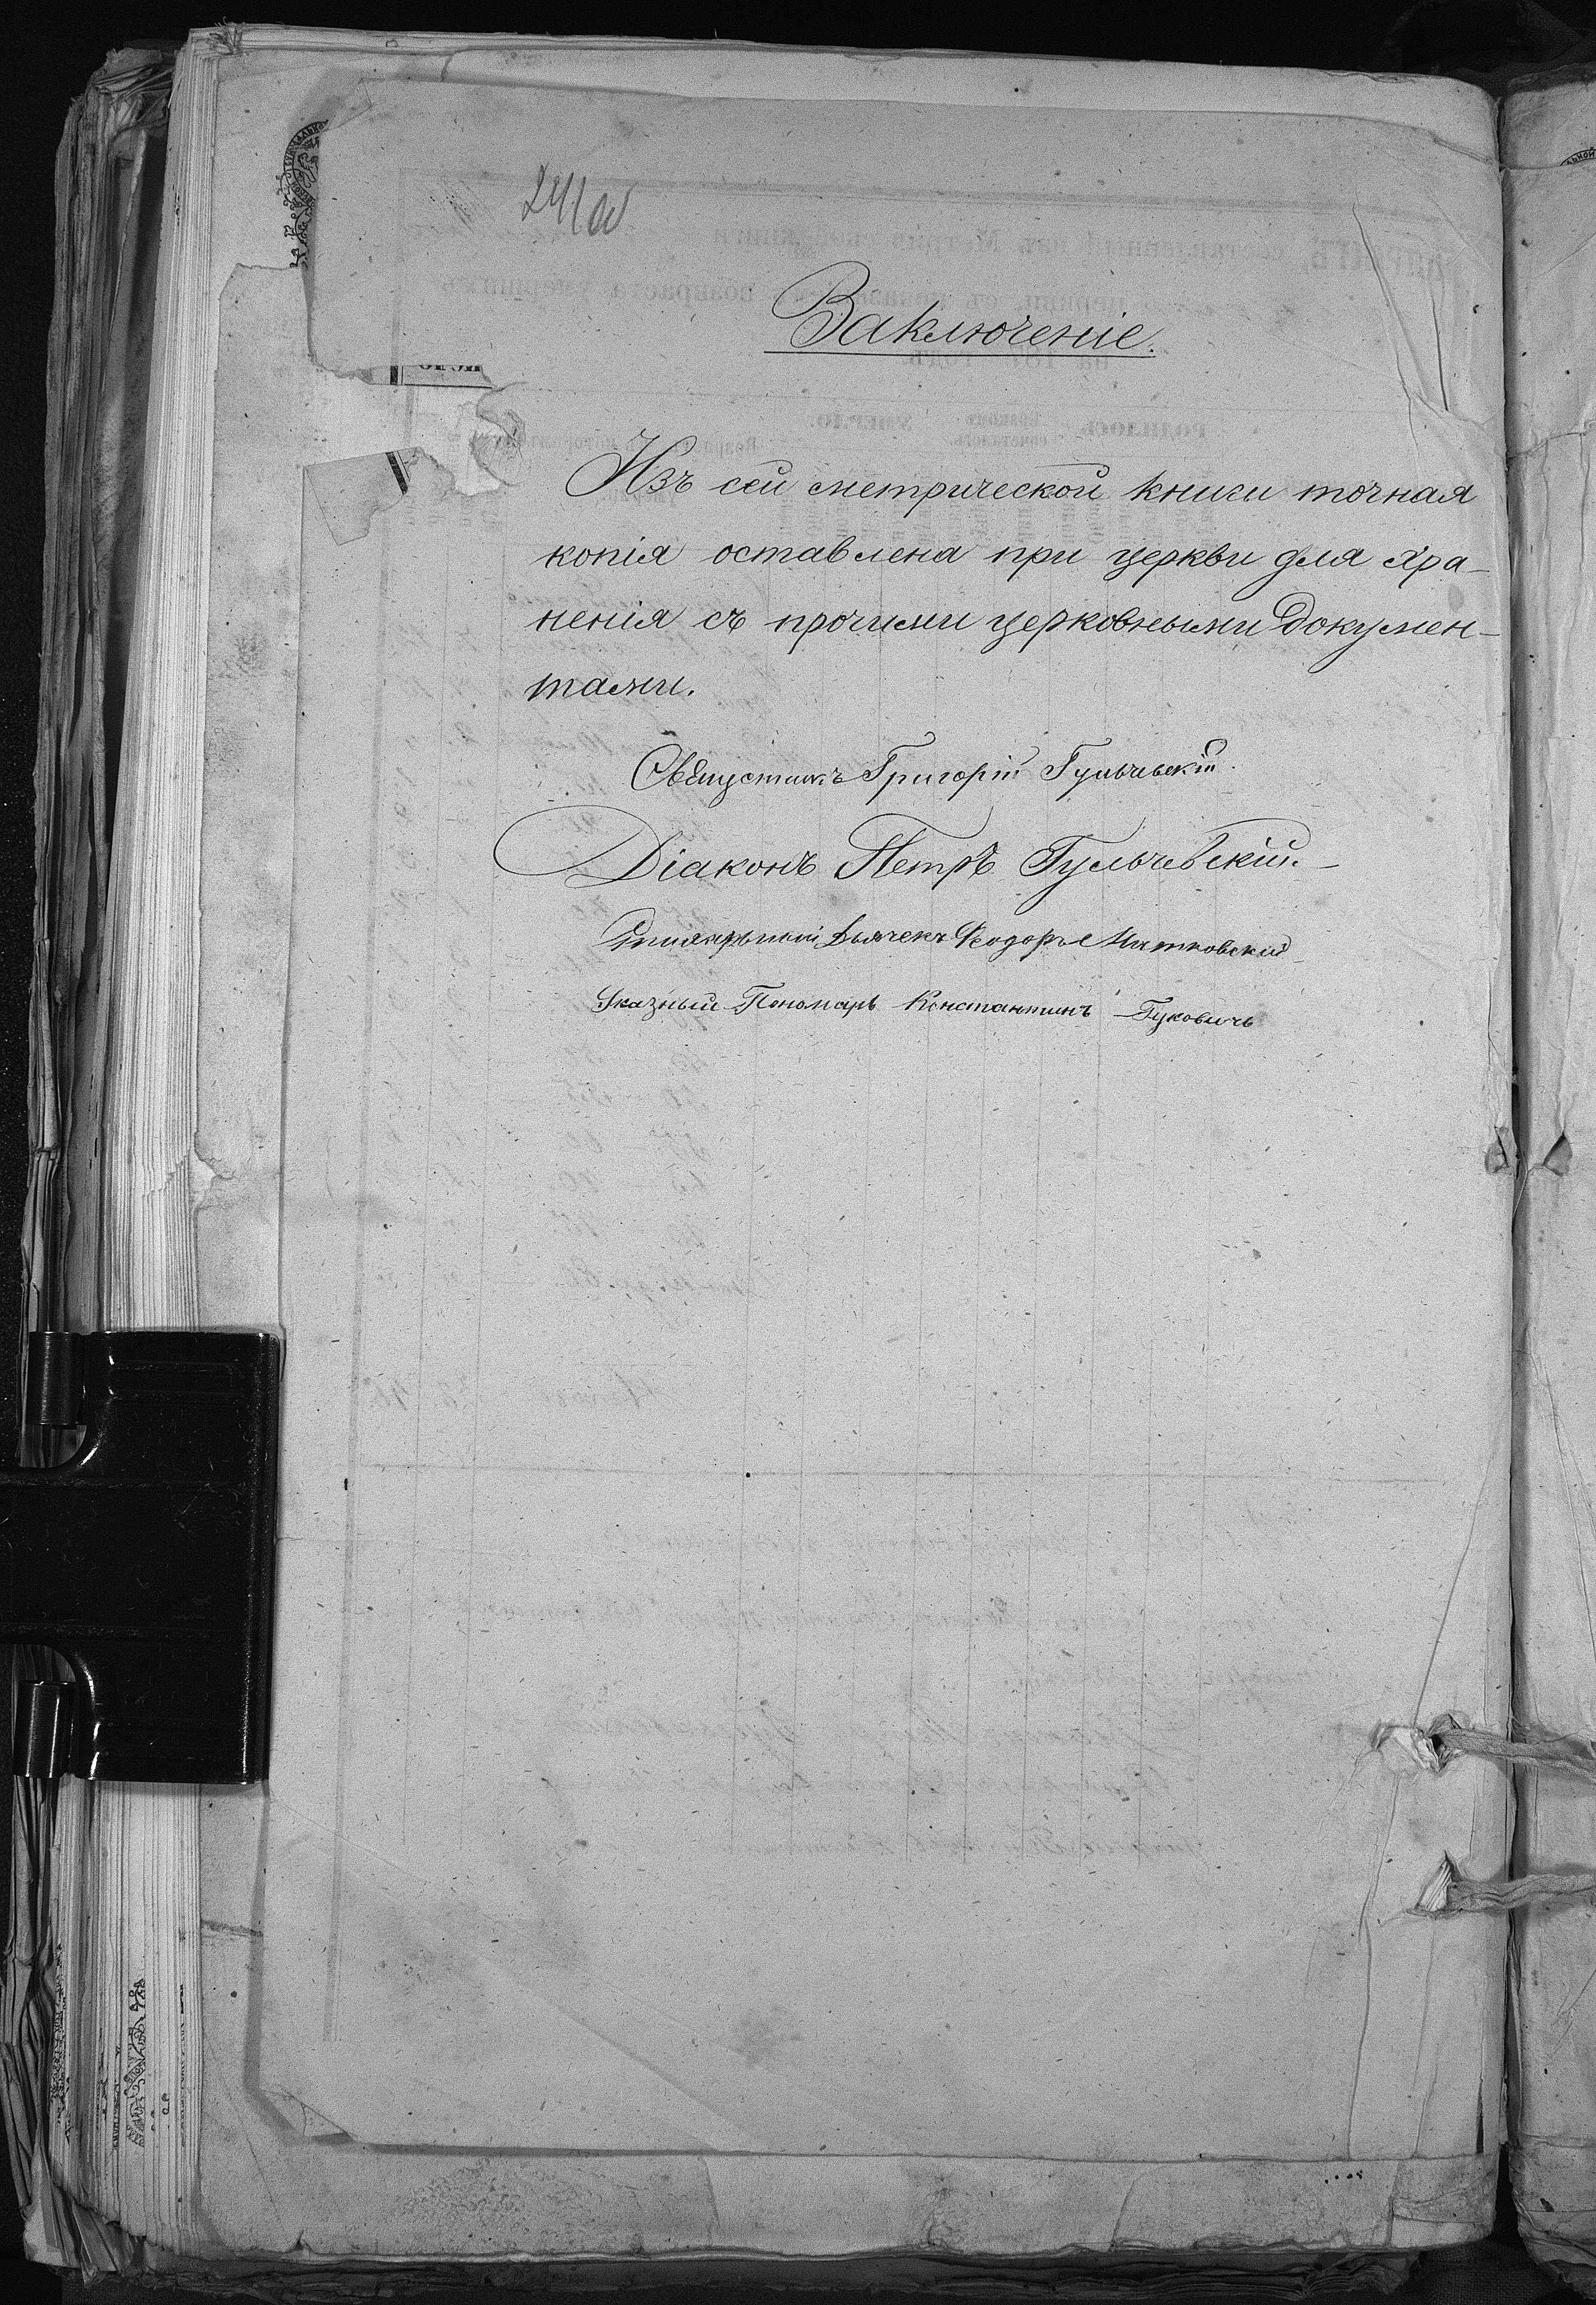 241 об
Заключеніе.
Изъ сей метрической книги точная
копія оставлена при церкви для хра-
ненія съ прочими церковными докумен-
тами.
Григорій Гульчевскій.
Діаконъ Петръ Гульчевскій.
Дьячекъ Феодоръ
Указный Пономарь Константинъ Гуковичъ